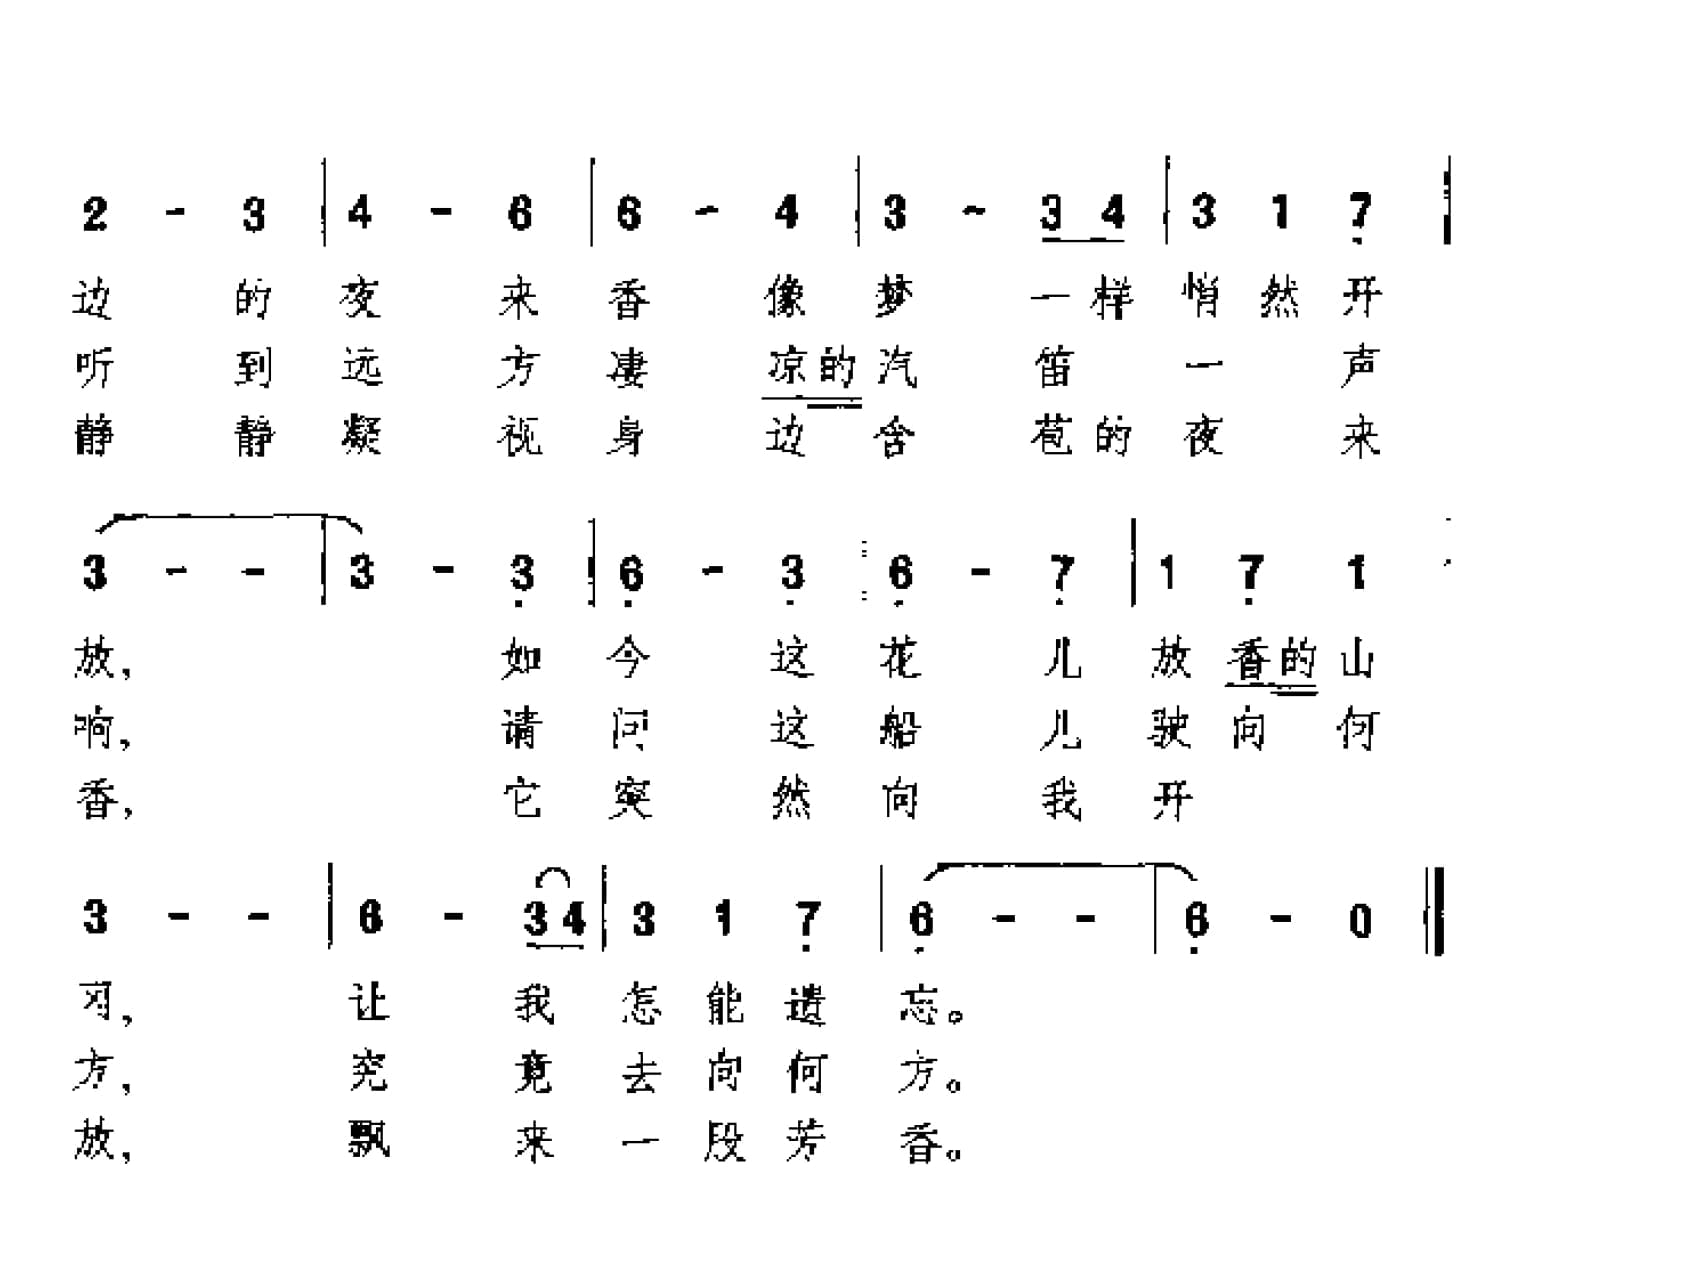 2 - 3 | 4 - 6 | 6 - 4 | 3 ~ 3 4 | 3 1 7 |
边 的 夜 来 香 像 梦 一 样 悄 然 开
听 到 远 方 凄 凉的 汽 笛 一 声
静 静 凝 视 身 边 含 苞 的 夜 来
3 - - | 3 - 3 | 6 - 3 | 6 - 7 | 1 7 1
放, 如 今 这 花 儿 放 香的 山
响, 请 问 这 船 儿 驶 向 何
香, 它 突 然 向 我 开
3 - - | 6 - 3 4 | 3 1 7 | 6 - - | 6 - 0 ‖
让 我 怎 能 遗 忘。
方, 究 竟 去 向 何 方。
放, 飘 来 一 段 芳 香。